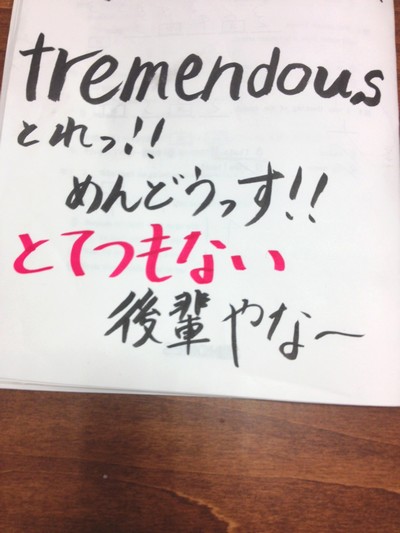 tremendous
とれっ!!
めんどうっす!!
とてつもない
後輩やな〜